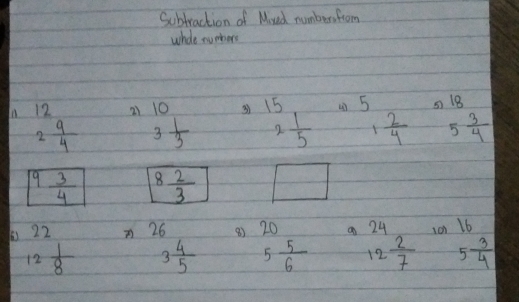 Subtraction of Mixed numbers from
whole numbers
1) 12 2) 10 3) 15 4) 5 5) 18
2 9/4 3 1/3 2 1/5 1 2/4 5 3/4
9 3/4 8 2/3
6) 22 7) 26 8) 20 9) 24 10) 16
12 1/8 3 4/5 5 5/6 12 2/7 5 3/4